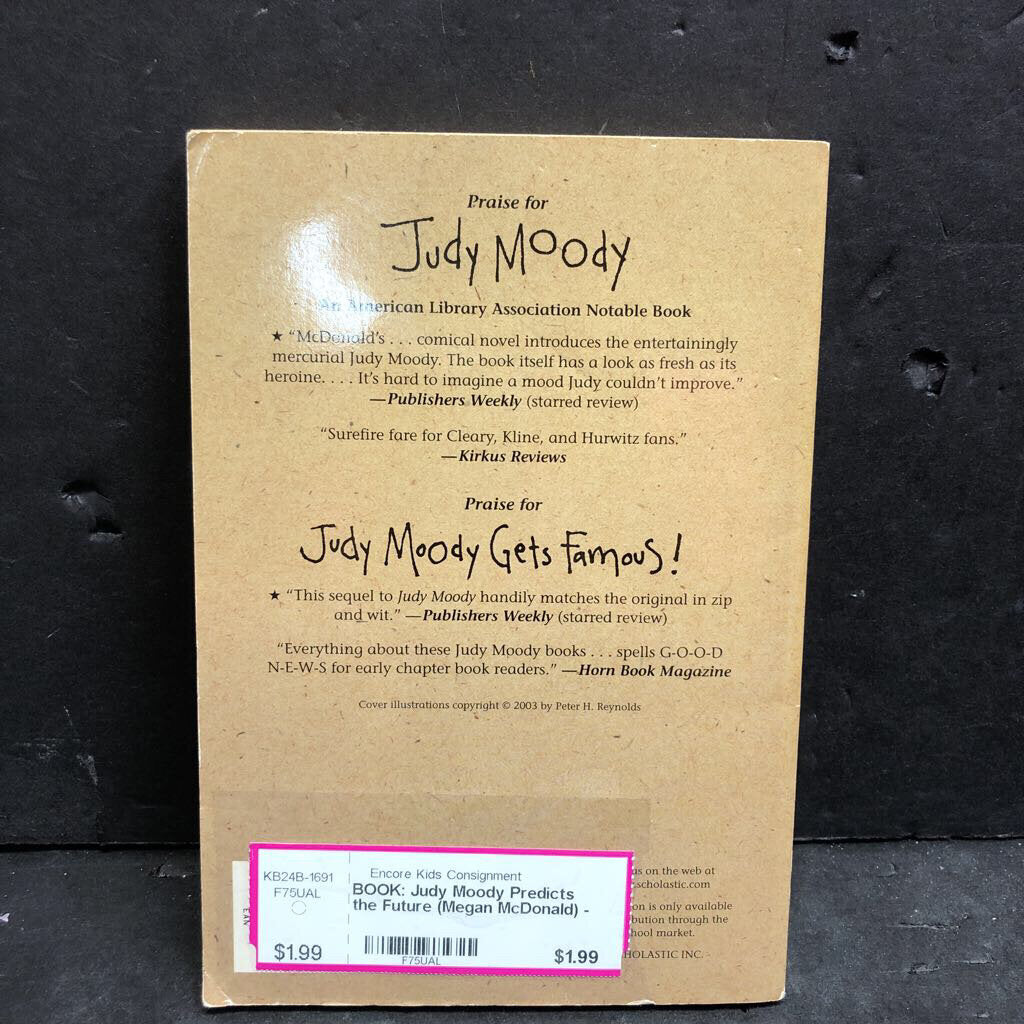 Praise for
Judy Moody
An American Library Association Notable Book
★ “McDonald’s . . . comical novel introduces the entertainingly
mercurial Judy Moody. The book itself has a look as fresh as its
heroine. . . . It’s hard to imagine a mood Judy couldn’t improve.”
—Publishers Weekly (starred review)
“Surefire fare for Cleary, Kline, and Hurwitz fans.”
—Kirkus Reviews
Praise for
Judy Moody Gets Famous!
★ “This sequel to Judy Moody handily matches the original in zip
and wit.” —Publishers Weekly (starred review)
“Everything about these Judy Moody books . . . spells G-O-O-D
N-E-W-S for early chapter book readers.” —Horn Book Magazine
Cover illustrations copyright © 2003 by Peter H. Reynolds
us on the web at
scholastic.com
on is only available
bution through the
hool market.
HOLASTIC INC.
EAN
KB24B-1691
F75UAL
$1.99
Encore Kids Consignment
BOOK: Judy Moody Predicts
the Future (Megan McDonald) -
F75UAL
$1.99